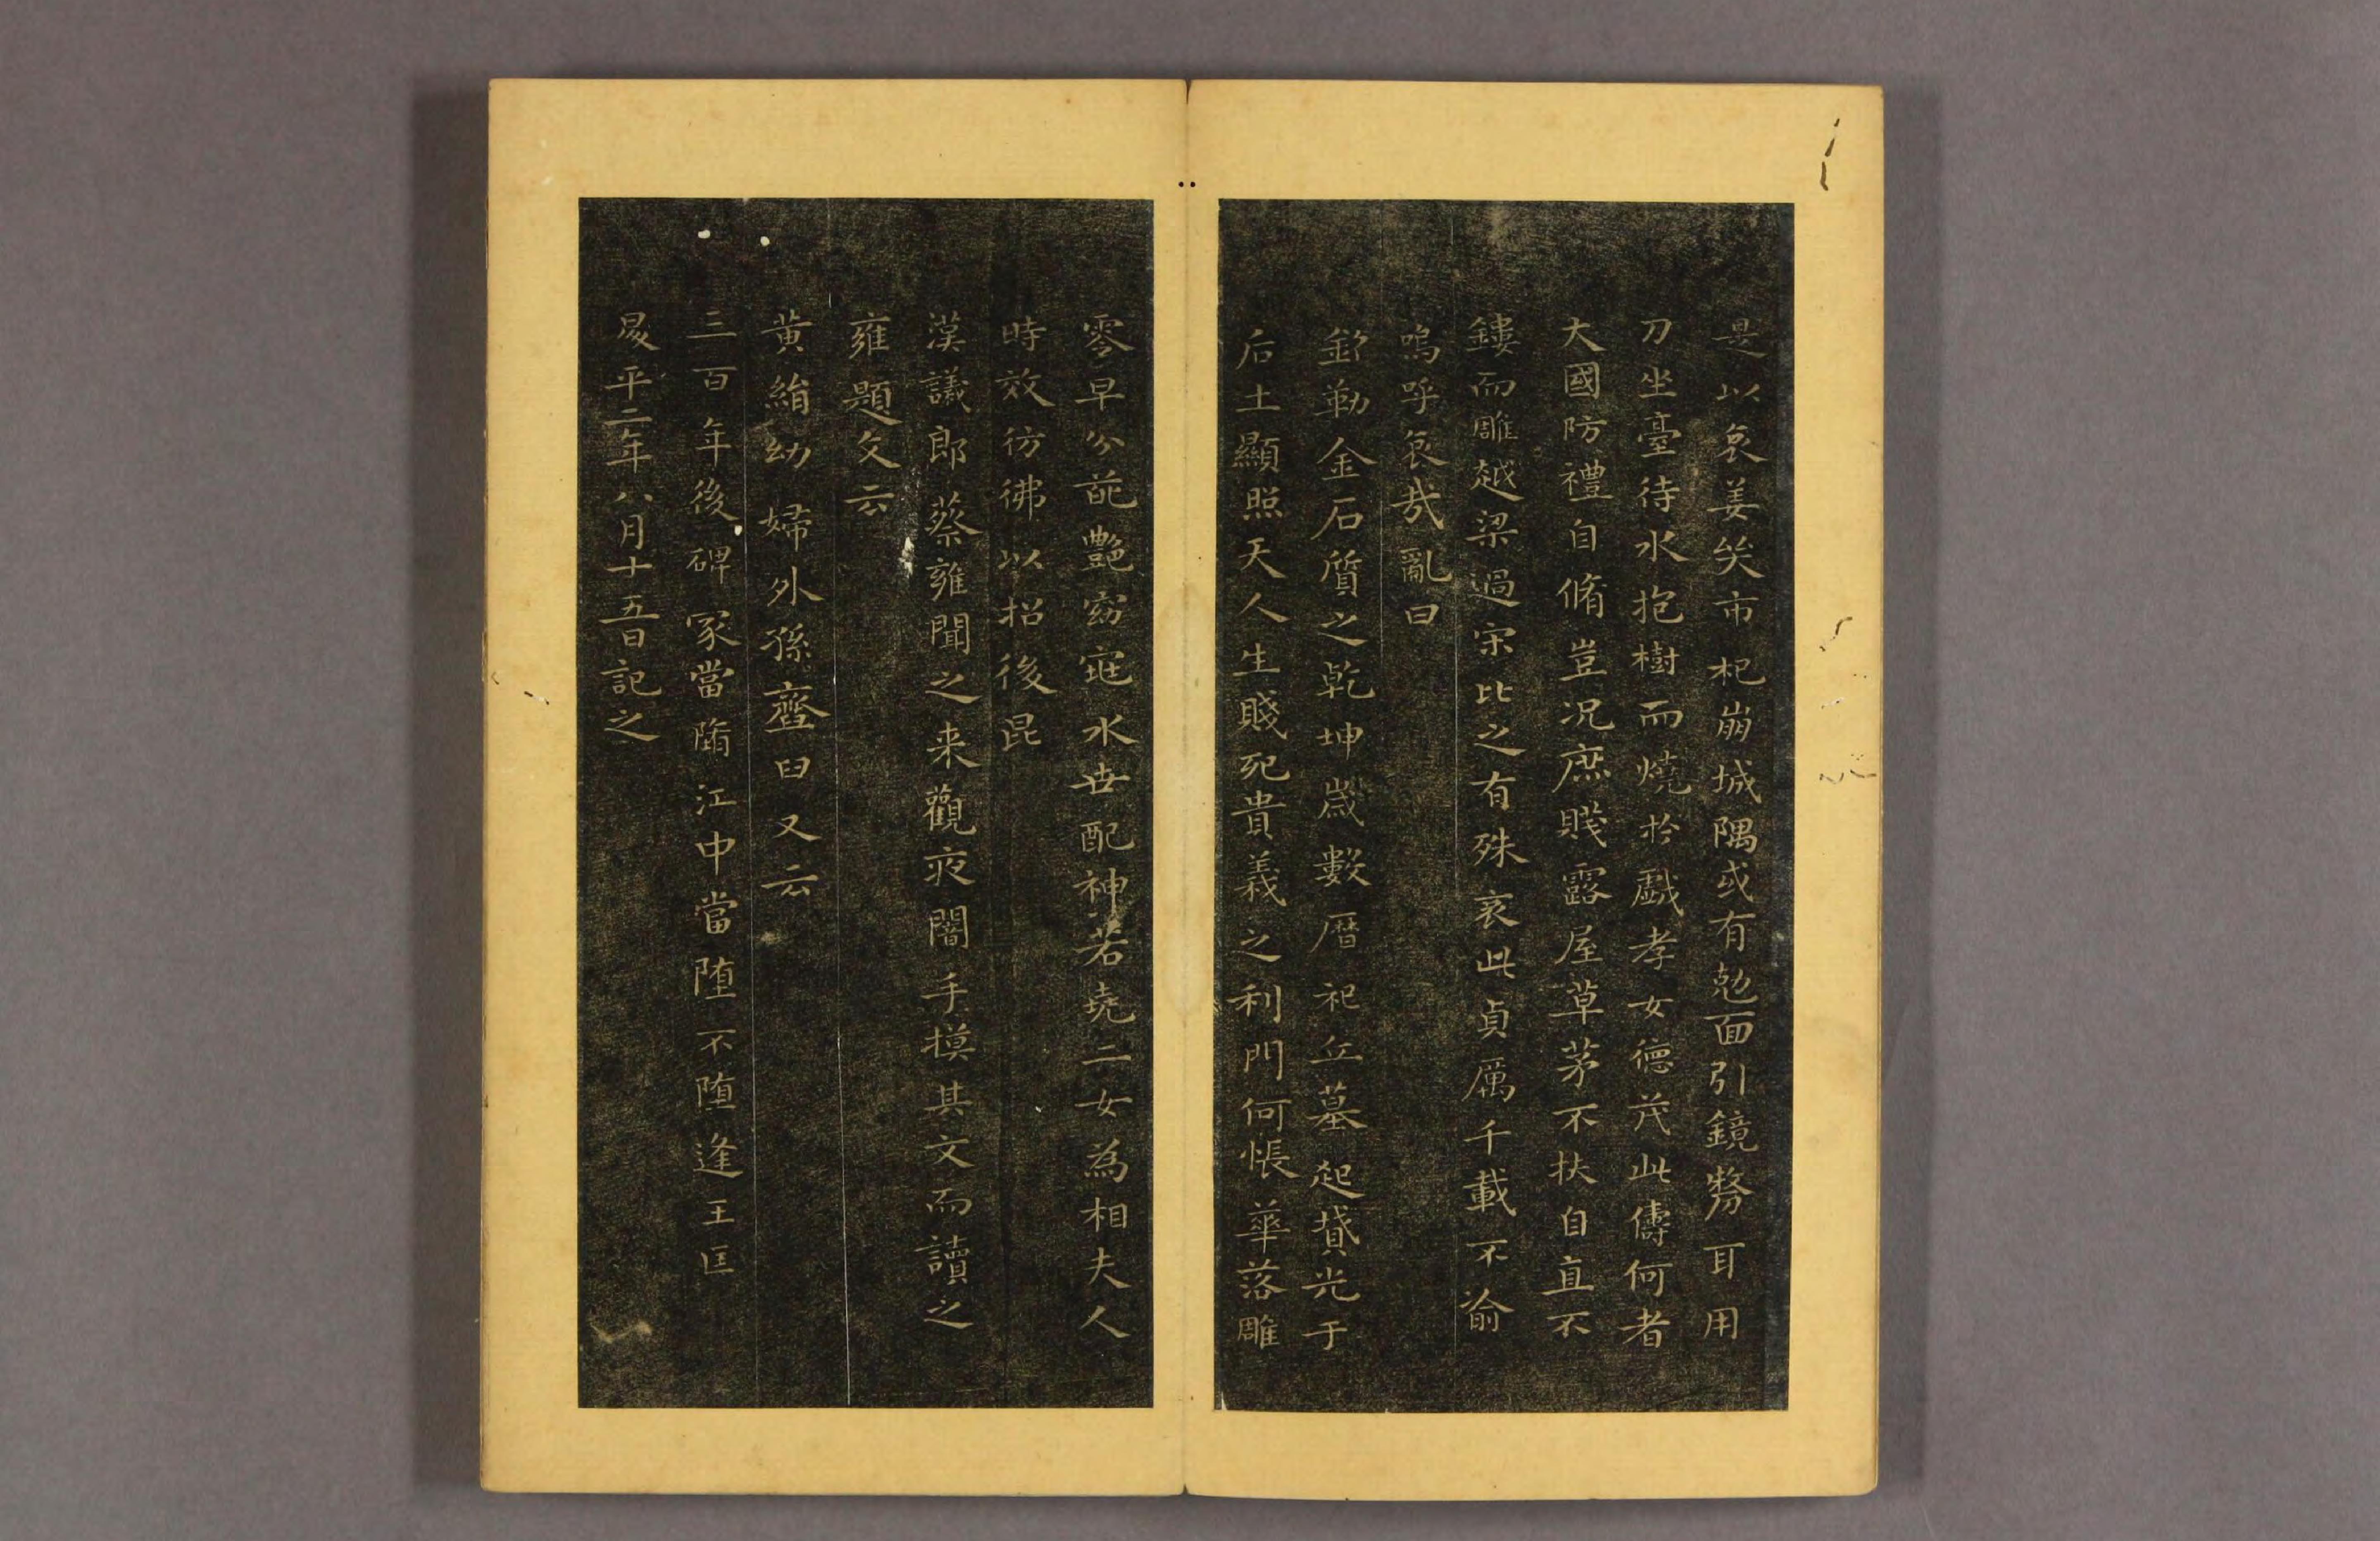 是以哀姜哭市杞崩城隅或有尅面引鏡剺耳用
刀坐臺待水抱樹而燒扵戲孝女德茂此儔何者
大國防禮自脩豈况庶賤露屋草茅不扶自直不
鏤而雕越梁過宋比之有殊哀此貞厲千載不渝
嗚呼哀哉亂曰
銘勒金石質之乾坤歲數曆祀丘墓起墳光于
后土顯照天人生賤死貴義之利門何悵華落雕
零早分葩艷窈窕永世配神若堯二女為相夫人
時效彷彿以招後昆
漢議郎蔡雍聞之来觀夜闇手摸其文而讀之
雍題文云
黄絹幼婦外孫齏臼又云
三百年後碑冢當墮江中當墮不墮逢王匡
昇平二年八月十五日記之